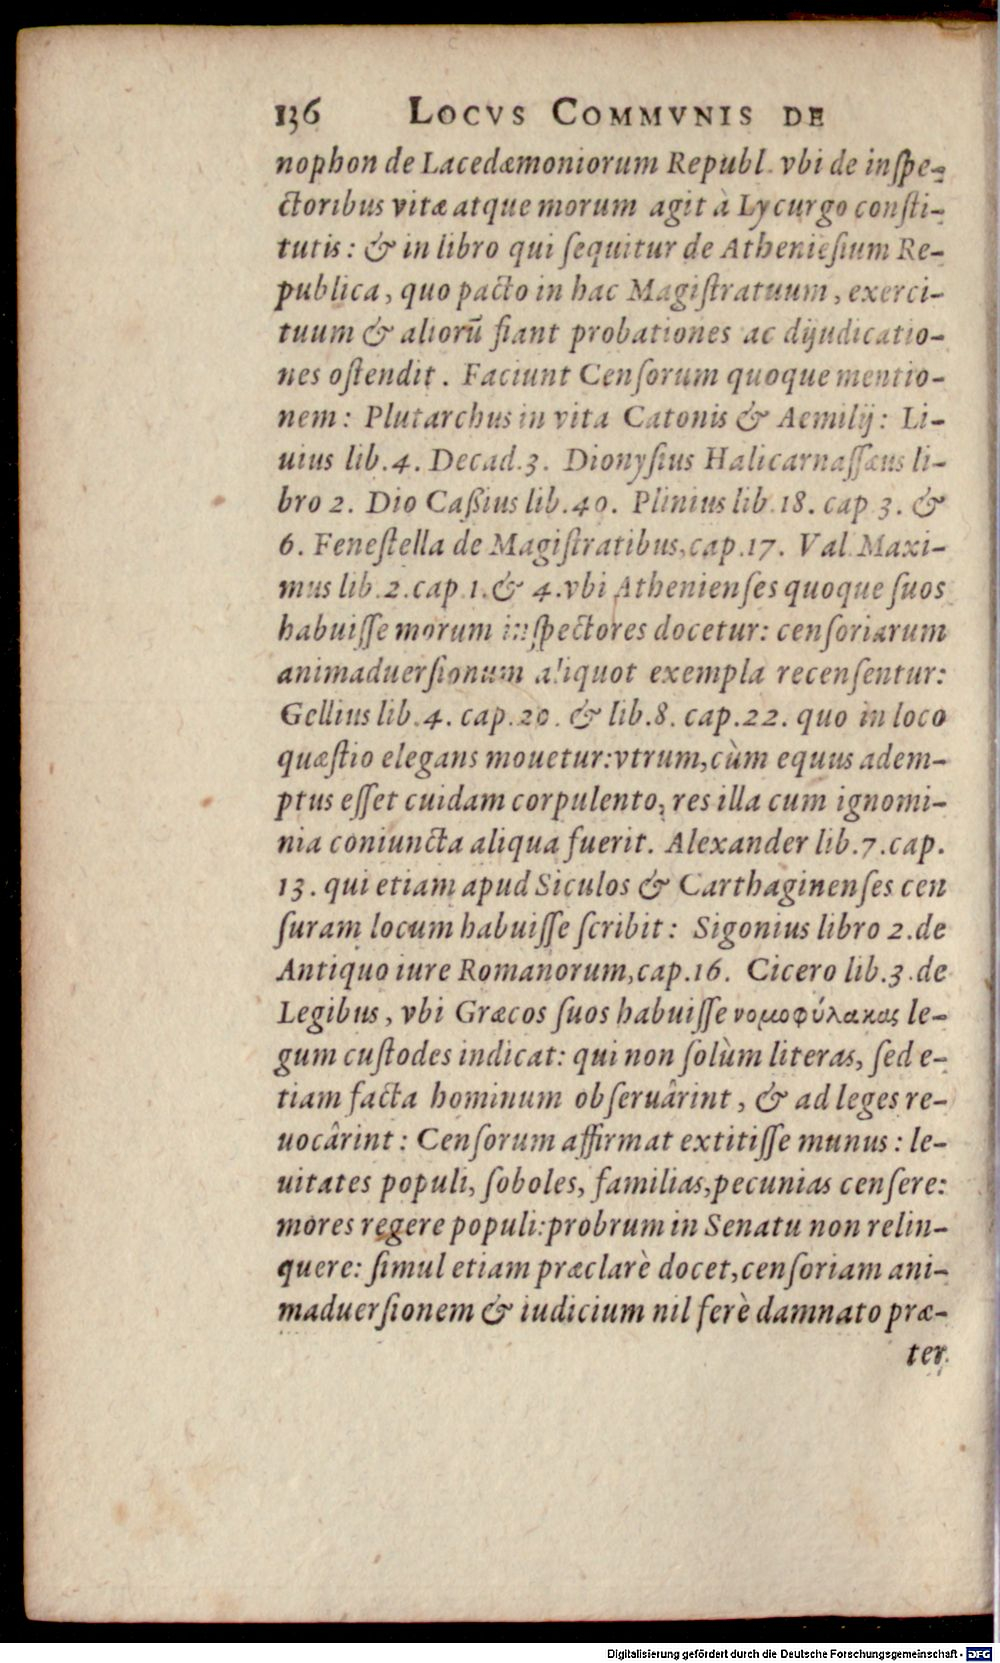 136 LOCVS COMMVNIS DE
nophon de Lacedæmoniorum Republ. vbi de inſpe-
ctoribus vitæ atque morum agit à Lycurgo conſti-
tutis: & in libro qui ſequitur de Athenieſium Re-
publica, quo pacto in hac Magiſtratuum, exerci-
tuum & aliorū fiant probationes ac dijudicatio-
nes oſtendit. Faciunt Cenſorum quoque mentio-
nem: Plutarchus in vita Catonis & Aemilij: Li-
uius lib.4. Decad.3. Dionyſius Halicarnaſſæus li-
bro 2. Dio Caßius lib.40. Plinius lib.18. cap 3. &
6. Feneſtella de Magiſtratibus,cap.17. Val.Maxi-
mus lib.2.cap.1.& 4.vbi Athenienſes quoque ſuos
habuiſſe morum inſpectores docetur: cenſoriarum
animaduerſionum aliquot exempla recenſentur:
Gellius lib.4. cap.20. & lib.8. cap.22. quo in loco
quæſtio elegans mouetur:vtrum,cùm equus adem-
ptus eſſet cuidam corpulento, res illa cum ignomi-
nia coniuncta aliqua fuerit. Alexander lib.7.cap.
13. qui etiam apud Siculos & Carthaginenſes cen
ſuram locum habuiſſe ſcribit: Sigonius libro 2.de
Antiquo iure Romanorum,cap.16. Cicero lib.3.de
Legibus, vbi Græcos ſuos habuiſſe νομοφύλακας le-
gum cuſtodes indicat: qui non ſolùm literas, ſed e-
tiam facta hominum obſeruârint, & ad leges re-
uocârint: Cenſorum affirmat extitiſſe munus: le-
uitates populi, ſoboles, familias,pecunias cenſere:
mores regere populi:probrum in Senatu non relin-
quere: ſimul etiam præclarè docet,cenſoriam ani-
maduerſionem & iudicium nil ferè damnato præ-
ter
Digitalisierung gefördert durch die Deutsche Forschungsgemeinschaft - DFG